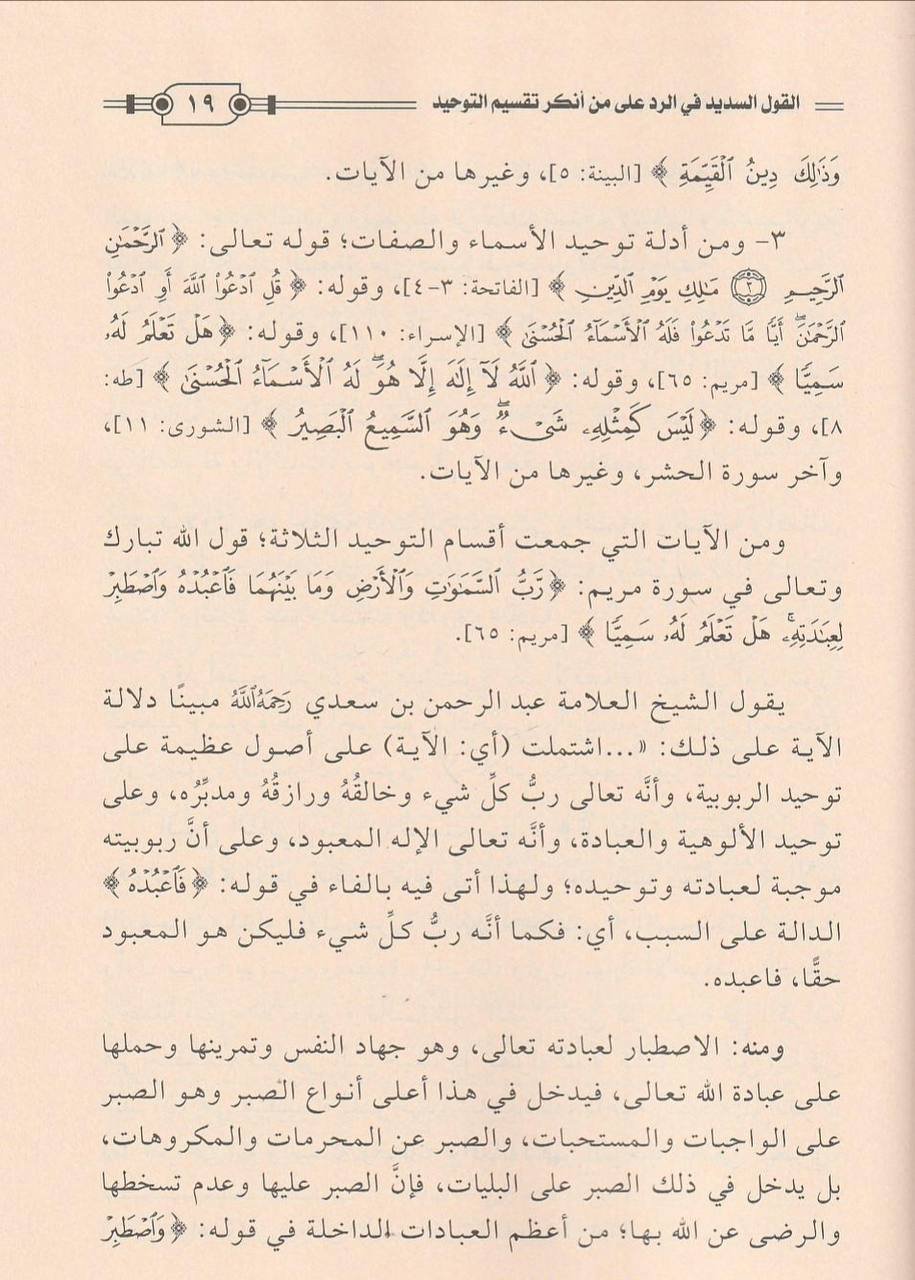 القول السديد في الرد على من أنكر تقسيم التوحيد ١٩
وَذَٰلِكَ دِينُ ٱلْقَيِّمَةِ ﴾ [البينة: ٥]، وغيرها من الآيات.
٣- ومن أدلة توحيد الأسماء والصفات؛ قوله تعالى: ﴿ ٱلرَّحْمَٰنِ
ٱلرَّحِيمِ ۝٣ مَٰلِكِ يَوْمِ ٱلدِّينِ ﴾ [الفاتحة: ٣-٤]، وقوله: ﴿ قُلِ ٱدْعُوا۟ ٱللَّهَ أَوِ ٱدْعُوا۟
ٱلرَّحْمَٰنَ ۖ أَيًّا مَّا تَدْعُوا۟ فَلَهُ ٱلْأَسْمَآءُ ٱلْحُسْنَىٰ ﴾ [الإسراء: ١١٠]، وقوله: ﴿ هَلْ تَعْلَمُ لَهُۥ
سَمِيًّا ﴾ [مريم: ٦٥]، وقوله: ﴿ ٱللَّهُ لَآ إِلَٰهَ إِلَّا هُوَ ۖ لَهُ ٱلْأَسْمَآءُ ٱلْحُسْنَىٰ ﴾ [طه:
٨]، وقوله: ﴿ لَيْسَ كَمِثْلِهِۦ شَىْءٌ ۖ وَهُوَ ٱلسَّمِيعُ ٱلْبَصِيرُ ﴾ [الشورى: ١١]،
وآخر سورة الحشر، وغيرها من الآيات.
ومن الآيات التي جمعت أقسام التوحيد الثلاثة؛ قول الله تبارك
وتعالى في سورة مريم: ﴿ رَّبُّ ٱلسَّمَٰوَٰتِ وَٱلْأَرْضِ وَمَا بَيْنَهُمَا فَٱعْبُدْهُ وَٱصْطَبِرْ
لِعِبَٰدَتِهِۦ ۚ هَلْ تَعْلَمُ لَهُۥ سَمِيًّا ﴾ [مريم: ٦٥].
يقول الشيخ العلامة عبد الرحمن بن سعدي رَحِمَهُ ٱللَّهُ مبينًا دلالة
الآية على ذلك: «...اشتملت (أي: الآية) على أصول عظيمة على
توحيد الربوبية، وأنَّه تعالى ربُّ كلِّ شيء وخالقُهُ ورازقُهُ ومدبِّرُه، وعلى
توحيد الألوهية والعبادة، وأنَّه تعالى الإله المعبود، وعلى أنَّ ربوبيته
موجبة لعبادته وتوحيده؛ ولهذا أتى فيه بالفاء في قوله: ﴿ فَٱعْبُدْهُ ﴾
الدالة على السبب، أي: فكما أنَّه ربُّ كلِّ شيء فليكن هو المعبود
حقًّا، فاعبده.
ومنه: الاصطبار لعبادته تعالى، وهو جهاد النفس وتمرينها وحملها
على عبادة الله تعالى، فيدخل في هذا أعلى أنواع الصبر وهو الصبر
على الواجبات والمستحبات، والصبر عن المحرمات والمكروهات،
بل يدخل في ذلك الصبر على البليات، فإنَّ الصبر عليها وعدم تسخطها
والرضى عن الله بها؛ من أعظم العبادات الداخلة في قوله: ﴿ وَٱصْطَبِرْ